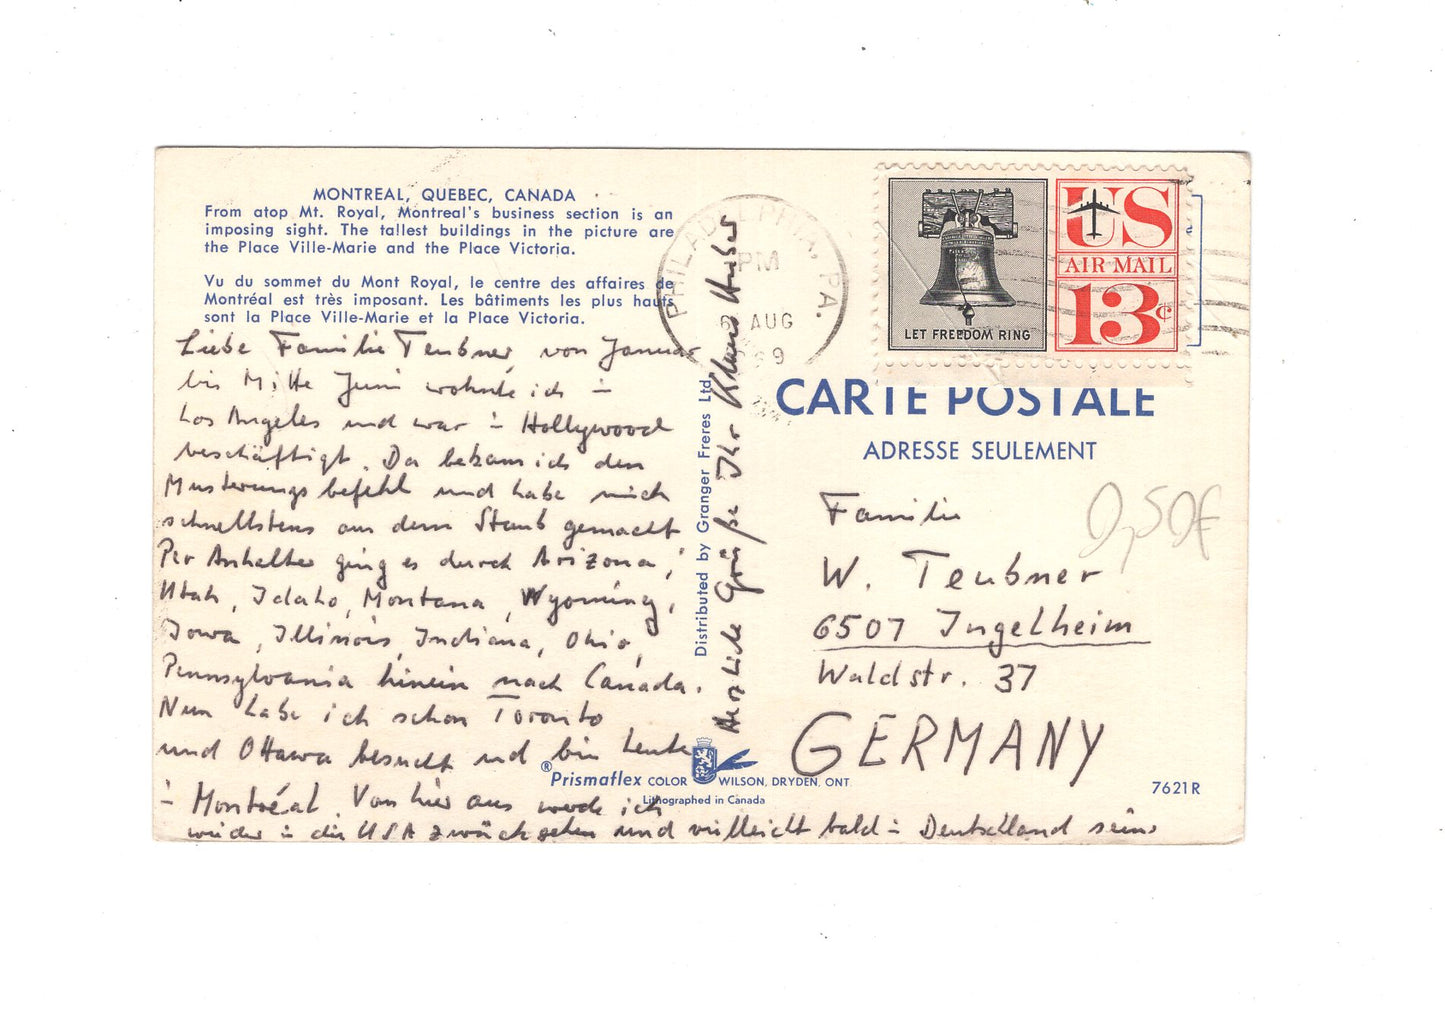 MONTREAL, QUEBEC, CANADA
From atop Mt. Royal, Montreal's business section is an
imposing sight. The tallest buildings in the picture are
the Place Ville-Marie and the Place Victoria.
Vu du sommet du Mont Royal, le centre des affaires de
Montréal est très imposant. Les bâtiments les plus hauts
sont la Place Ville-Marie et la Place Victoria.
Liebe Familie Teubner, von Januar
bis Mitte Juni wohnte ich in
Los Angeles und war in Hollywood
beschäftigt. Da bekam ich den
Musterungsbefehl und habe mich
schnellstens aus dem Staub gemacht
Per Anhalter ging es durch Arizona,
Utah, Idaho, Montana, Wyoming,
Iowa, Illinois, Indiana, Ohio,
Pennsylvania hinein nach Canada.
Nun habe ich schon Toronto
und Ottawa besucht und bin heute
in Montréal. Von hier aus werde ich
wieder in die USA zurückgehen und vielleicht bald in Deutschland sein.
Herzliche Grüße Ihr Klaus Huber
Distributed by Granger Freres Ltd.
®Prismaflex COLOR WILSON, DRYDEN, ONT.
Lithographed in Canada
PHILADELPHIA, PA.
PM
6 AUG
1969
LET FREEDOM RING
US
AIR MAIL
13¢
CARTE POSTALE
ADRESSE SEULEMENT
0,50€
Familie
W. Teubner
6507 Ingelheim
Waldstr. 37
GERMANY
7621R